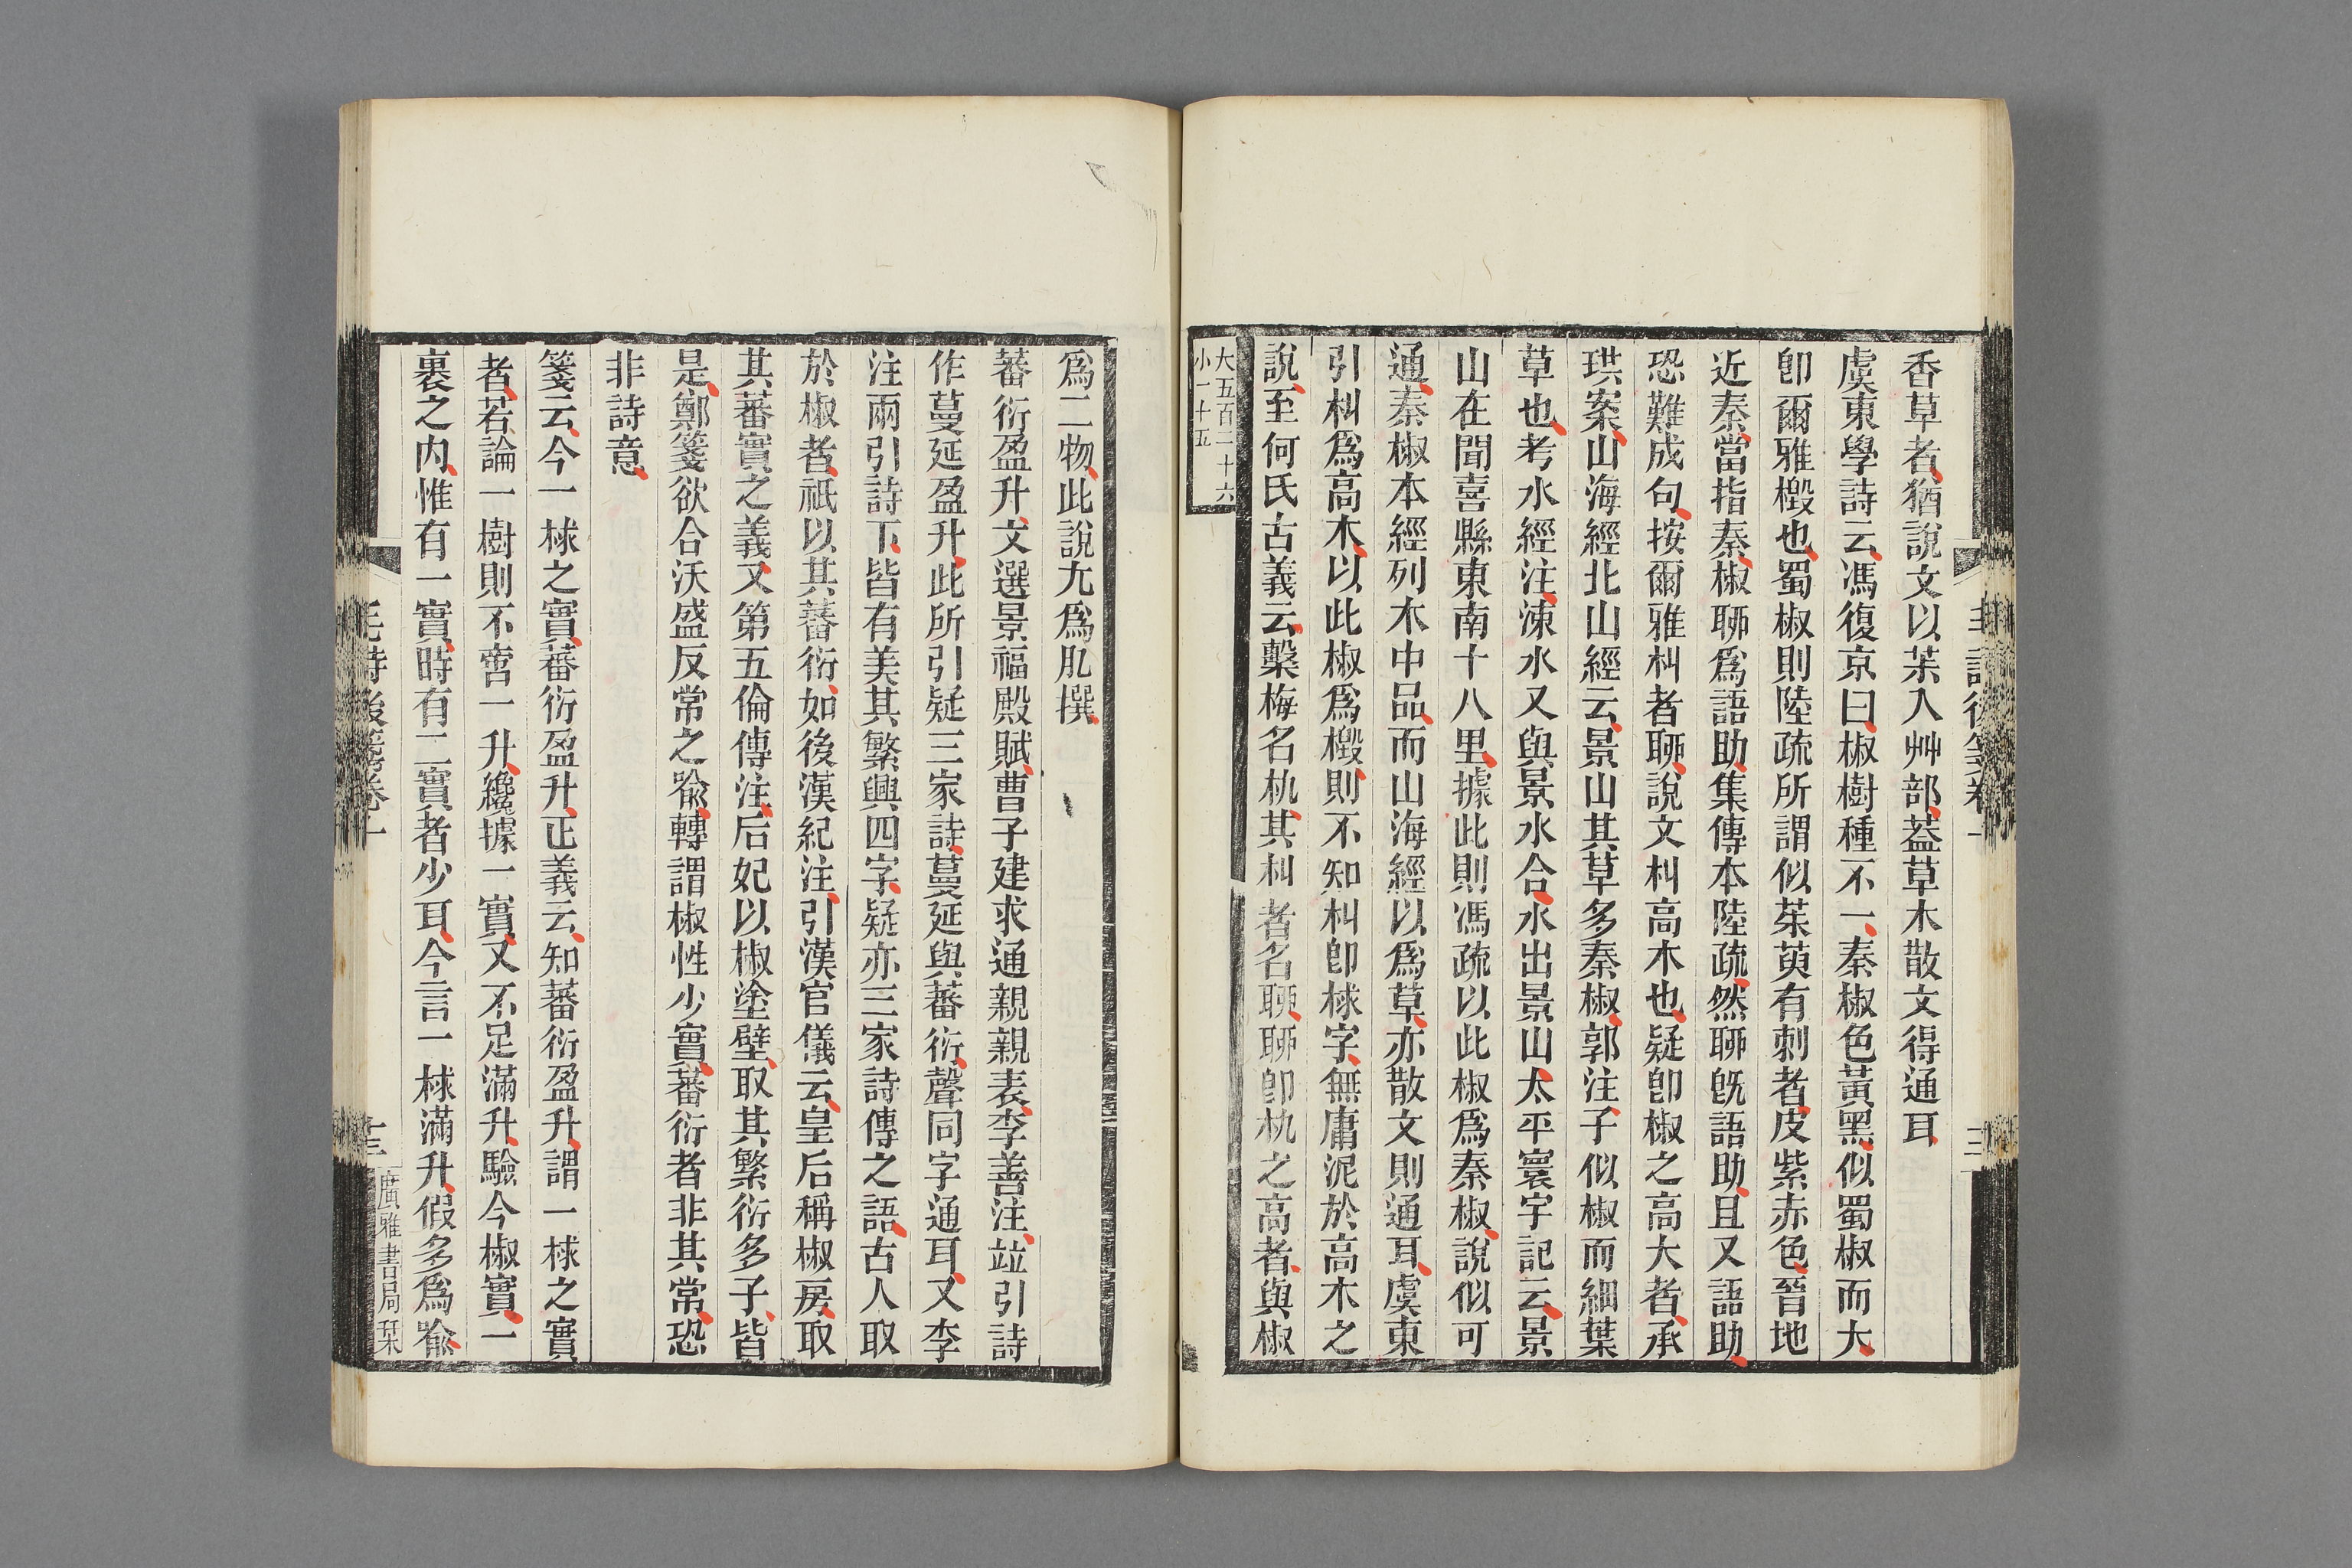 香草者猶説文以茮入艸部葢草木散文得通耳
虞東學詩云馮復京曰椒樹種不一秦椒色黃黑似蜀椒而大
卽爾雅檓也蜀椒則陸疏所謂似茱萸有刺者皮紫赤色晉地
近秦當指秦椒聊爲語助集傳本陸疏然聊旣語助且又語助
恐難成句按爾雅朻者聊說文朻高木也疑卽椒之高大者承
珙案山海經北山經云景山其草多秦椒郭注子似椒而細葉
草也考水經注涑水又與景水合水出景山太平寰宇記云景
山在聞喜縣東南十八里據此則馮疏以此椒爲秦椒說似可
通秦椒本經列木中品而山海經以爲草亦散文則通耳虞東
引朻爲高木以此椒爲檓則不知朻卽梂字無庸泥於高木之
說至何氏古義云櫐梅名朹其朻者名聊聊卽朹之高者與椒
大五百二十六
小一十五
爲二物此說尤爲肊撰
蕃衍盈升文選景福殿賦曹子建求通親親表李善注竝引詩
作蔓延盈升此所引疑三家詩蔓延與蕃衍聲同字通耳又李
注兩引詩下皆有美其繁興四字疑亦三家詩傳之語古人取
於椒者祇以其蕃衍如後漢紀注引漢官儀云皇后稱椒房取
其蕃實之義又第五倫傳注后妃以椒塗壁取其繁衍多子皆
是鄭箋欲合沃盛反常之喩轉謂椒性少實蕃衍者非其常恐
非詩意
箋云今一梂之實蕃衍盈升正義云知蕃衍盈升謂一梂之實
者若論一樹則不啻一升纔據一實又不足滿升驗今椒實一
裹之內惟有一實時有二實者少耳今言一梂滿升假多爲喩
毛詩後箋卷十
廣雅書局栞